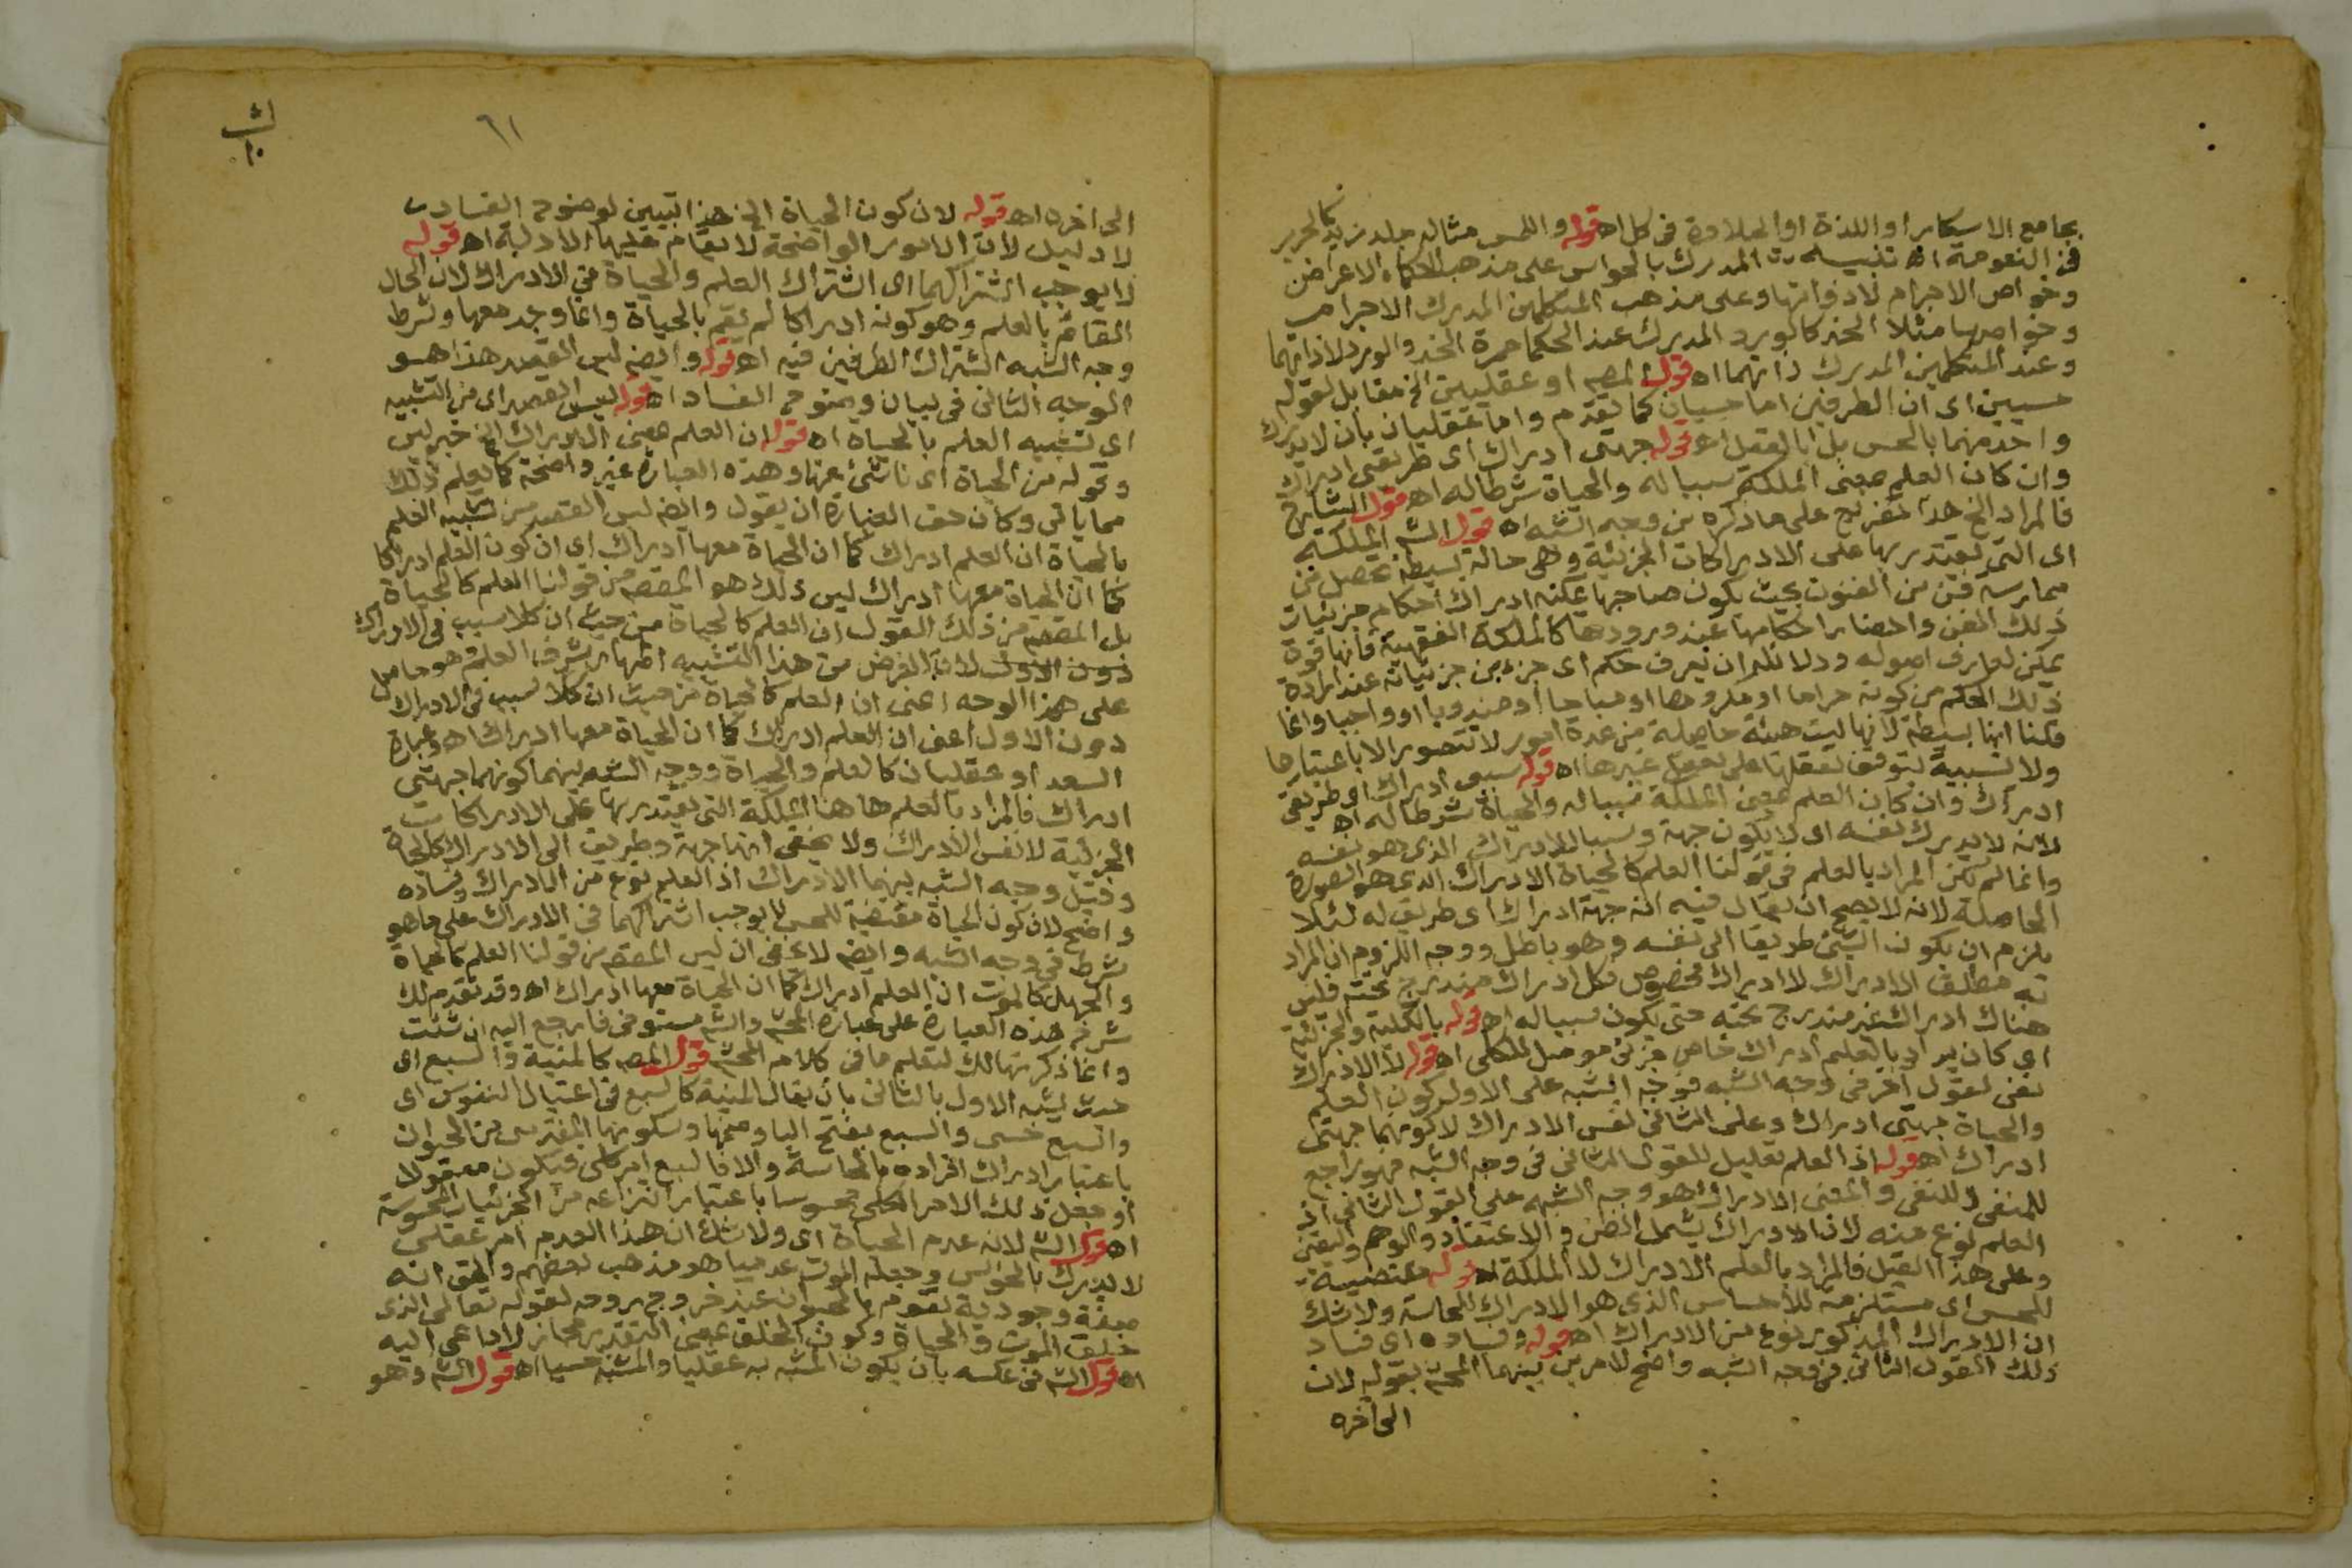 بجامع الاسكار او اللذة او الحلاوة في كل اه قوله واللمس مثاله جلد زيد كالحرير
في النعومة اه تنبيه المدرك بالحواس على مذهب الحكماء الاعراض
وخواص الاجرام لا ذواتها وعلى مذهب المتكلمين المدرك الاجرام
وخواصها مثلا الخد كالورد المدرك عند الحكما حمرة الخد والورد لا ذاتهما
وعند المتكلمين المدرك ذاتهما اه قول المصـ او عقليين الخ مقابل لقوله
حسيين اى ان الطرفين اما حسيان كما تقدم واما عقليان بان لا يدرك
واحد منهما بالحس بل بالعقل اه قوله جهتى ادراك اى طريقي ادراك
وان كان العلم بمعنى الملكة سببا له والحياة شرطا له اه قول الشارح
فالمراد الخ هذا تفريع على ما ذكره من وجه الشبه اه قول الشـ الملكة
اى التي يقتدر بها على الادراكات الجزئية وهي حالة بسيطة تحصل من
ممارسة فن من الفنون بحيث يكون صاحبها يمكنه ادراك احكام جزئيات
ذلك الفن واحضار احكامها عند ورودها كالملكة الفقهية فانها قوة
يمكن لعارف اصوله ودلائله ان يعرف حكم اى جزء من جزئياته عند ارادة
ذلك الحكم من كونه حراما او مكروها او مباحا او مندوبا او واجبا وانما
قلنا انها بسيطة لانها ليست هيئة حاصلة من عدة امور لا تتصور الا باعتبارها
ولا نسبية يتوقف تعقلها على تعقل غيرها اه قوله سببى ادراك او طريقى
ادراك وان كان العلم بمعنى الملكة سببا له والحياة شرطا له اه
لانه لا يدرك نفسه اى لا يكون جهة وسببا للادراك الذى هو نفسه
وانما لم يكن المراد بالعلم في قولنا العلم كالحياة الادراك الذى هو الصورة
الحاصلة لانه لا يصح ان يقال فيه انه جهة ادراك اى طريق له لئلا
يلزم ان يكون الشئ طريقا الى نفسه وهو باطل ووجه اللزوم ان المراد
به مطلق الادراك لا ادراك مخصوص فكل ادراك مندرج تحته فليس
هناك ادراك غير مندرج تحته حتى يكون سببا له اه قوله بالكلية والجزئية
اى كان يراد بالعلم ادراك خاص جزئى موصل للكلى اه قوله لا الادراك
نفى لقول اخر في وجه الشبه فوجه الشبه على الاول كون العلم
والحياة جهتى ادراك وعلى الثاني نفس الادراك لا كونهما جهتى
ادراك اه قوله اذ العلم تعليل للقول الثاني في وجه الشبه فهو راجع
للمنفى لا للنفى والمعنى الادراك هو وجه الشبه على القول الثاني اذ
العلم نوع منه لان الادراك يشمل الظن والاعتقاد والوهم واليقين
وعلى هذا القيل فالمراد بالعلم الادراك لا الملكة اه قوله مقتضية
للحس اى مستلزمة للاحساس الذى هو الادراك للحاسة ولا شك
ان الادراك المذكور نوع من الادراك اه قوله وفساده اى فساد
ذلك القول الثاني في وجه الشبه واضح لامرين بينهما المحشـ بقوله لان
الى آخره
٦١
الى اخره اه قوله لان كون الحياة الخ هذا تبيين لوضوح الفساد
لا دليل لان الامور الواضحة لا يقام عليها الادلة اه قوله
لا يوجب اشتراكهما اى اشتراك العلم والحياة في الادراك لان الحال
القائم بالعلم وهو كونه ادراكا لم يقم بالحياة وانما وجد معها وشرط
وجه الشبه اشتراك الطرفين فيه اه قوله وايضـ ليس القصد هذا هو
الوجه الثانى في بيان وضوح الفساد اه قوله ليس القصد اى من التشبيه
اى تشبيه العلم بالحياة اه قوله ان العلم بمعنى الادراك الخ خبر ليس
وقوله من الحياة اى ناشئ عنها وهذه العبارة غير واضحة كما يعلم ذلك
مما ياتى وكان حق العبارة ان يقول وايضـ ليس القصد من تشبيه العلم
بالحياة ان العلم ادراك كما ان الحياة معها ادراك اى ان كون العلم ادراكا
كما ان الحياة معها ادراك ليس ذلك هو المقصـ من قولنا العلم كالحياة
بل المقصـ من ذلك القول ان العلم كالحياة من حيث ان كلا سبب في الادراك
دون الاول لان الغرض من هذا التشبيه اظهار شرف العلم وهو حاصل
على هذا الوجه اعنى ان العلم كالحياة من حيث ان كلا سبب في الادراك
دون الاول اعنى ان العلم ادراك كما ان الحياة معها ادراك اه وعبارة
السعد او عقليان كالعلم والحياة ووجه الشبه بينهما كونهما جهتى
ادراك فالمراد بالعلم ها هنا الملكة التي يقتدر بها على الادراكات
الجزئية لا نفس الادراك ولا يخفى انها جهة وطريق الى الادراك كالحياة
وقيل وجه الشبه بينهما الادراك اذ العلم نوع من الادراك وفساده
واضح لان كون الحياة مقتضية للحس لا يوجب اشتراكهما في الادراك على ما هو
شرط في وجه الشبه وايضـ لا يخفى ان ليس المقصـ من قولنا العلم كالحياة
والجهل كالموت ان العلم ادراك كما ان الحياة معها ادراك اه وقد تقدم لك
شرح هذه العبارة على عبارة المحشـ والشـ مستوفى فارجع اليه ان شئت
وانما ذكرتها لك لتعلم ما في كلام المحشـ قول المصـ كالمنية والسبع اى
حيث يشبه الاول بالثانى بان يقال المنية كالسبع في اغتيال النفوس اى
والسبع حسى والسبع بفتح البا وضمها وسكونها المفترس من الحيوان
باعتبار ادراك افراده بالحاسة والا فالسبع امر كلى فيكون معقولا
او جعل ذلك الامر الكلى محسوسا باعتبار انتزاعه من الجزئيات المحسوسة
اه قول الشـ لانه عدم الحياة اى ولا شك ان هذا العدم امر عقلى
لا يدرك بالحواس وجعله الموت عدميا هو مذهب بعضهم والحق انه
صفة وجودية تقوم بالحيوان عند خروج روحه لقوله تعالى الذى
خلق الموت والحياة وكون الخلق بمعنى التقدير مجاز لا داعى اليه
اه قول الشـ في عكسه بان يكون المشبه به عقليا والمشبه حسيا اه قول الشـ وهو